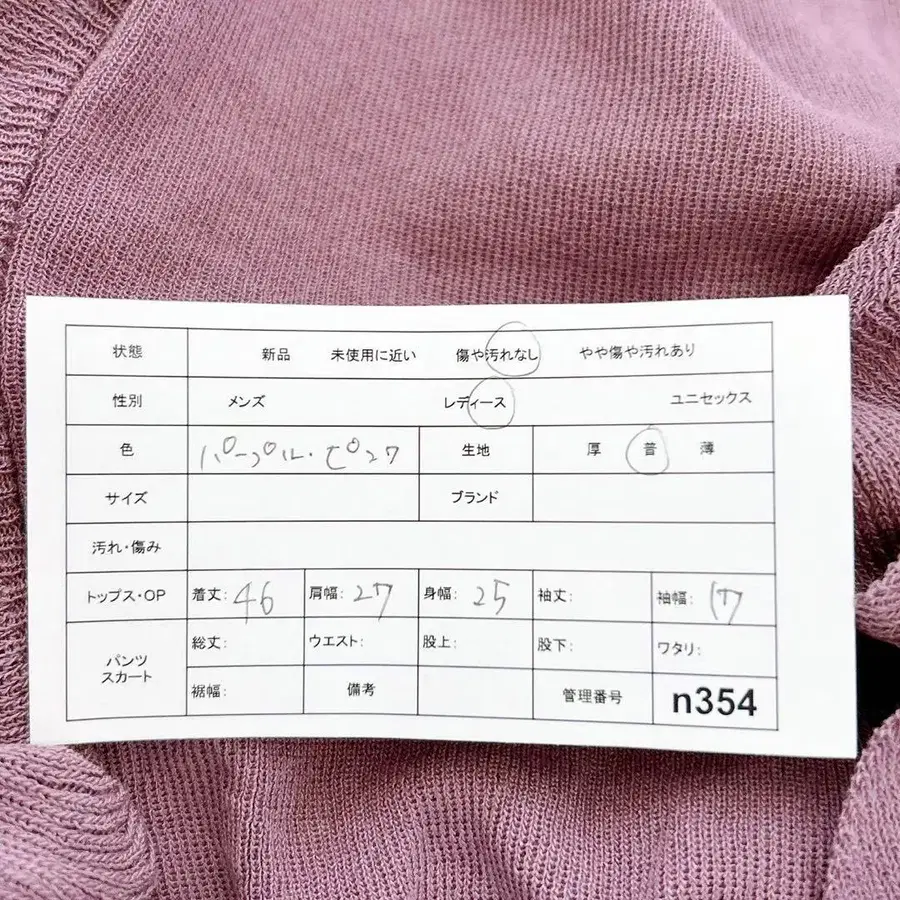 状態 新品 未使用に近い 傷や汚れなし やや傷や汚れあり
性別 メンズ レディース ユニセックス
色 パープル・ピンク 生地 厚 普 薄
サイズ ブランド
汚れ・傷み
トップス・OP 着丈: 46 肩幅: 27 身幅: 25 袖丈: 袖幅: 17
パンツ
スカート
総丈: ウエスト: 股上: 股下: ワタリ:
裾幅: 備考 管理番号 n354